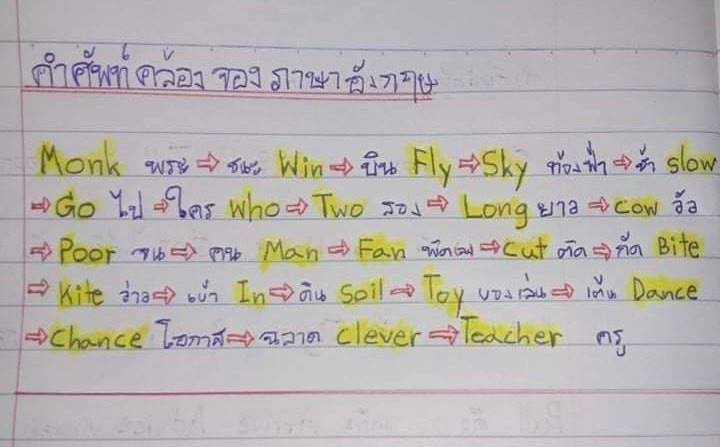 คำศัพท์ คล้อง จอง ภาษา อังกฤษ
Monk พระ ⇒ ชนะ Win ⇒ บิน Fly ⇒ Sky ท้องฟ้า ⇒ ช้า slow
⇒ Go ไป ⇒ ใคร who ⇒ Two สอง ⇒ Long ยาว ⇒ cow วัว
⇒ Poor จน ⇒ คน Man ⇒ Fan พัดลม ⇒ cut ตัด ⇒ กัด Bite
⇒ Kite ว่าว ⇒ เข้า In ⇒ ดิน soil ⇒ Toy ของเล่น ⇒ เต้น Dance
⇒ Chance โอกาส ⇒ ฉลาด clever ⇒ Teacher ครู